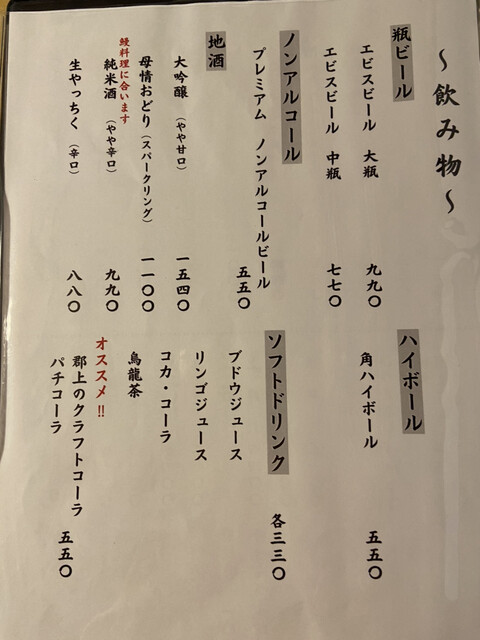 ～飲み物～
瓶ビール
エビスビール 大瓶 九九〇
エビスビール 中瓶 七七〇
ノンアルコール
プレミアム ノンアルコールビール
五五〇
地酒
大吟醸 (やや甘口) 一五四〇
母情おどり (スパークリング) 一一〇〇
鰻料理に合います
純米酒 (やや辛口) 九九〇
生やっちく (辛口) 八八〇
ハイボール
角ハイボール 五五〇
ソフトドリンク 各三三〇
ブドウジュース
リンゴジュース
コカ・コーラ
烏龍茶
オススメ!!
郡上のクラフトコーラ
パチコーラ 五五〇